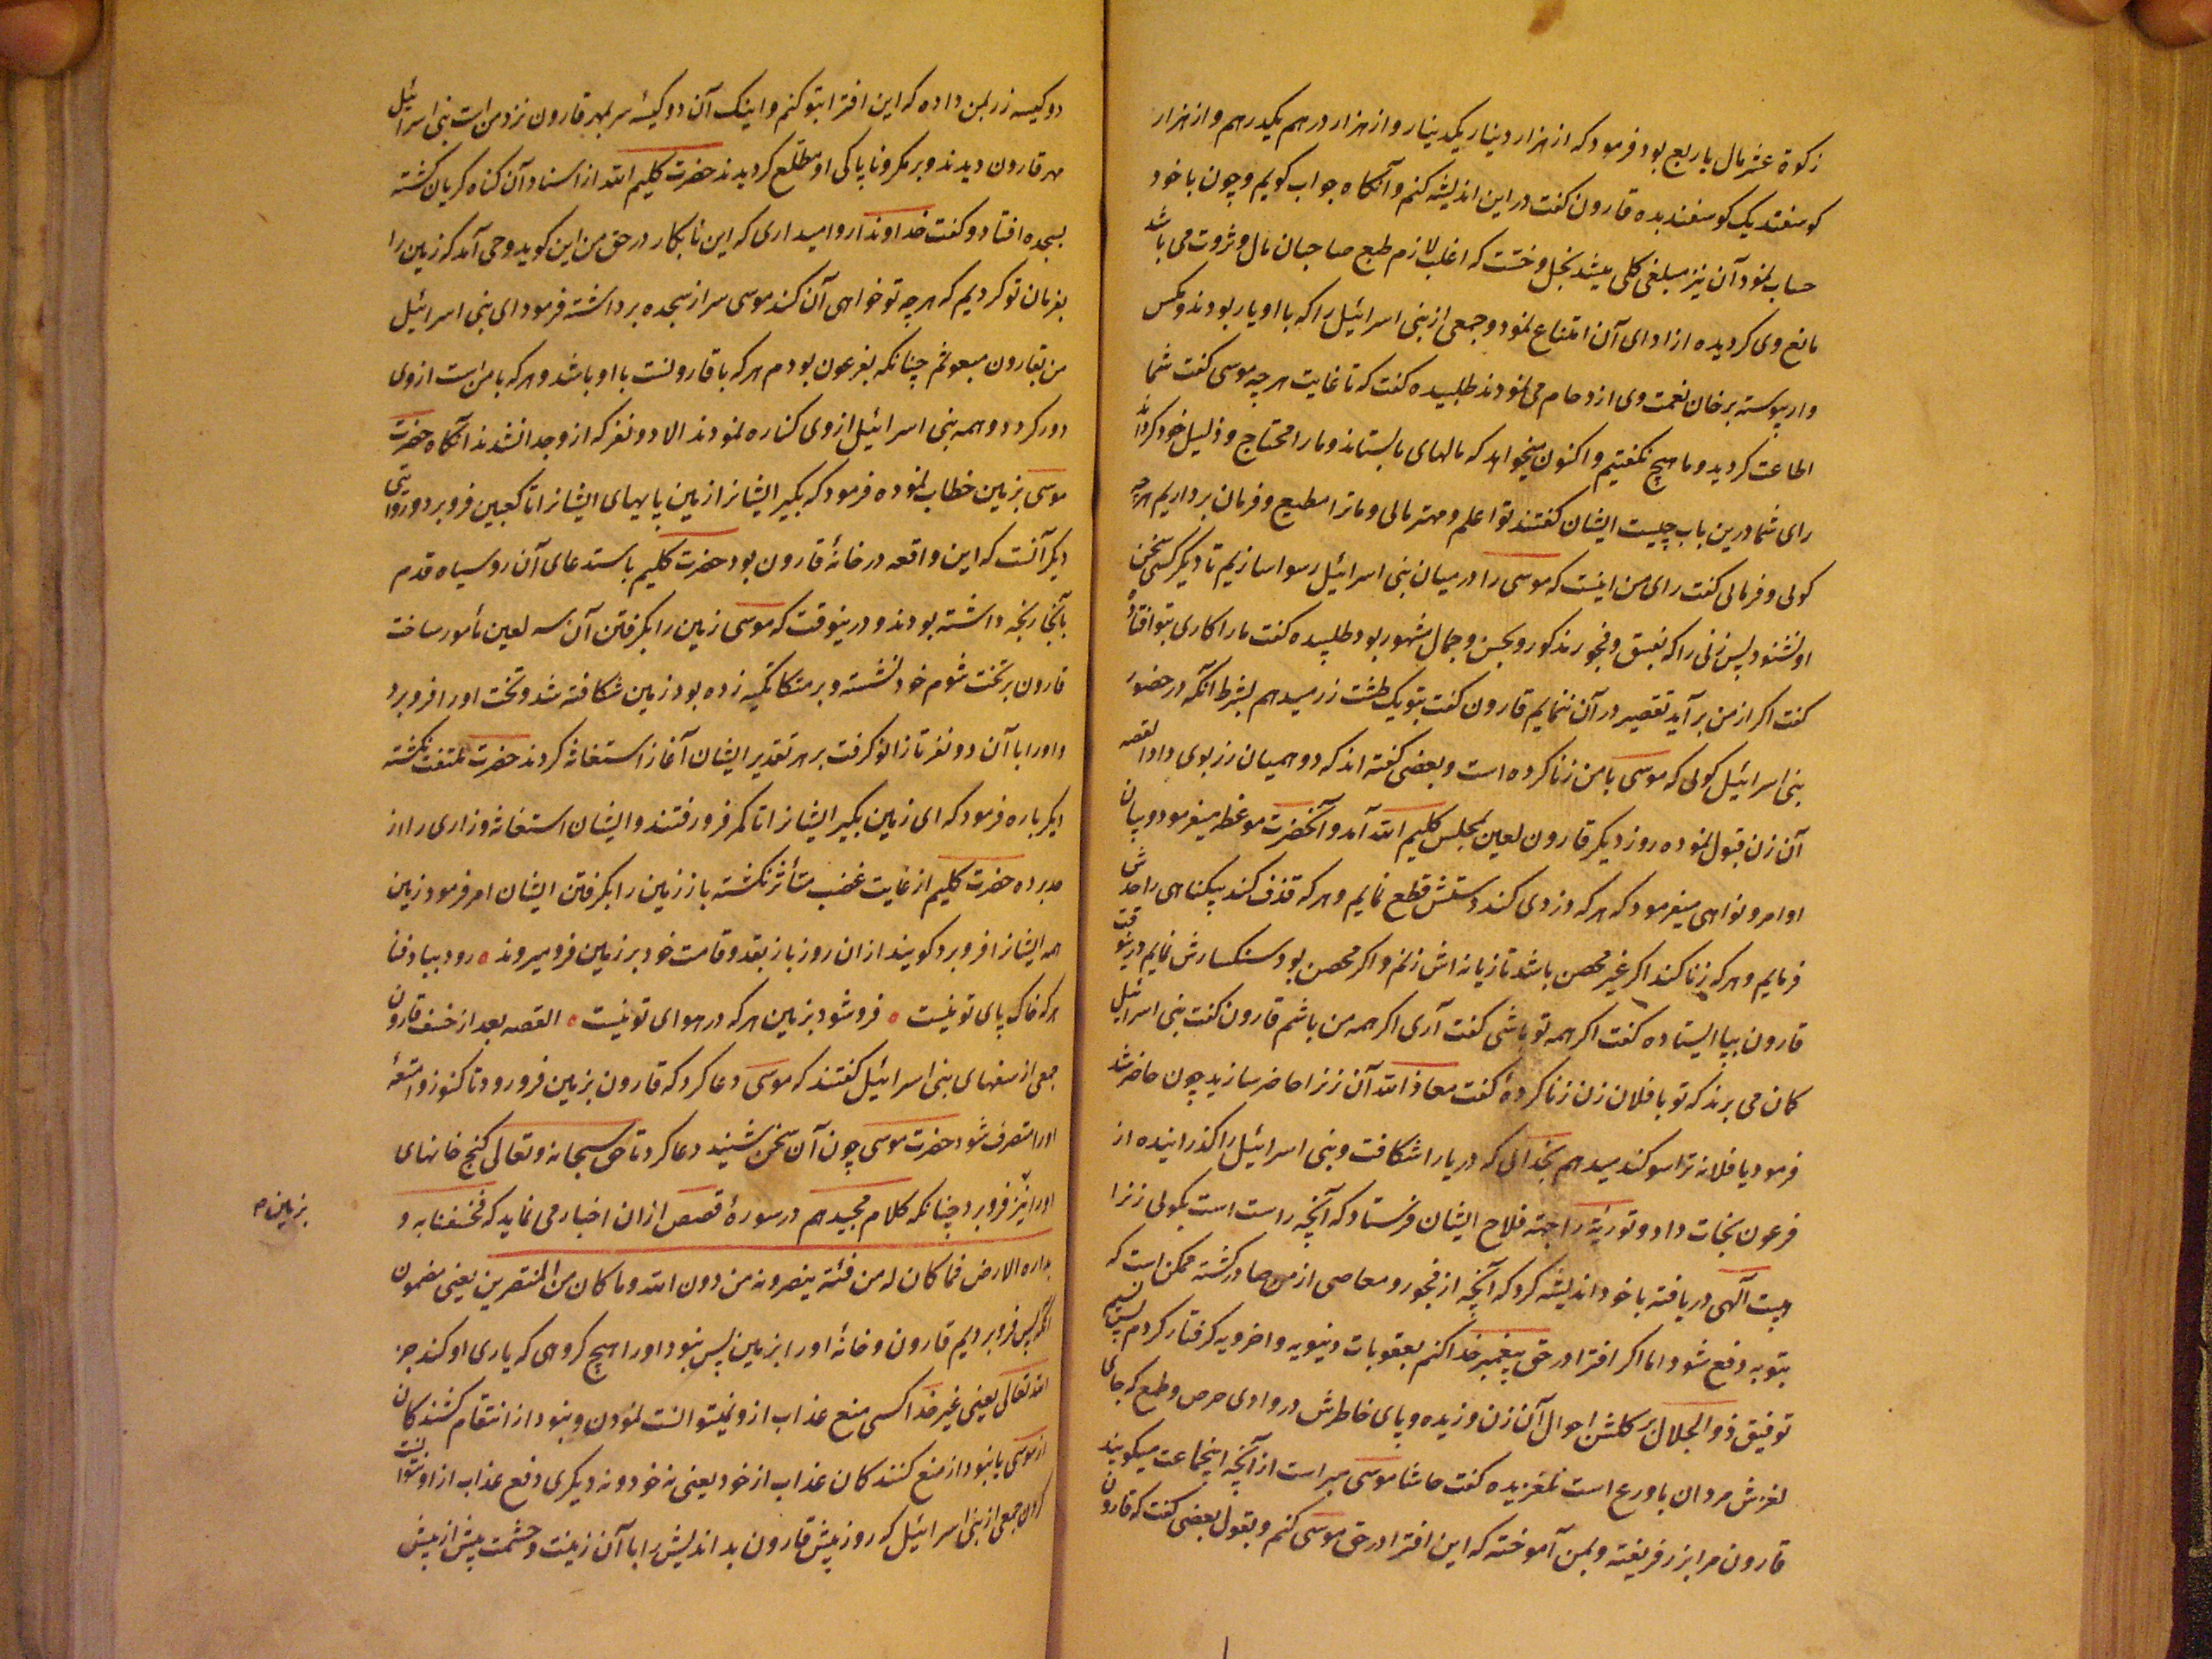 زکوة عشر مال یا ربع بود فرمود که از هزار دینار یکدینار و از هزار درهم یکدرهم و از هزار
کوسفند یک کوسفند بده قارون کفت در این اندیشه کنم و آنکاه جواب کویم و چون با خود
حساب نمود آن نیز مبلغی کلی میشد بخل و خست که اغلب لازم طبع صاحبان مال و ثروت می باشد
مانع وی کردیده از ادای آن امتناع نمود و جمعی از بنی اسرائیل را که با او یار بودند و مکس
وار پیوسته بر خان نعمت وی ازدحام می نمودند طلبیده کفت که تا غایت هر چه موسی کفت شما
اطاعت کردید و ما هیچ نکفتیم و اکنون میخواهد که مالهای ما بستاند و ما را محتاج و ذلیل خود کرداند
رای شما درین باب چیست ایشان کفتند تو اعلم و مهتر مائی و ما ترا مطیع و فرمان برداریم هرچه
کوئی و فرمائی کفت رای من اینست که موسی را در میان بنی اسرائیل رسوا سازیم تا دیکر کسی سخن
او نشنود پس زنی را که بفسق و فجور مذکور و بحسن و جمال مشهور بود طلبیده کفت ما را کاری بتو افتاده
کفت اکر از من برآید تقصیر در آن ننمایم قارون کفت بتو یک طشت زر میدهم بشرط آنکه در حضور
بنی اسرائیل کوئی که موسی با من زنا کرده است و بعضی کفته اند که دو همیان زر بوی داد القصه
آن زن قبول نموده روز دیکر قارون لعین بمجلس کلیم الله آمد و آنحضرت موعظه میفرمود و بیان
اوامر و نواهی میفرمود که هر که دزدی کند دستش قطع نمایم و هر که قذف کند بیکناهی را حدش
فرمایم و هر که زنا کند اکر غیر محصن باشد تازیانه اش زنم و اکر محصن بود سنکسارش نمایم درینوقت
قارون بپا ایستاده کفت اکر همه تو باشی کفت آری اکر همه من باشم قارون کفت بنی اسرائیل
کان می برند که تو با فلان زن زنا کردۀ کفت معاذ الله آن زنرا حاضر سازید چون حاضر شد
فرمود یا فلانه ترا سوکند میدهم بخدائی که دریا را شکافت و بنی اسرائیل را کذرانیده از
فرعون نجات داد و توریة را جهته فلاح ایشان فرستاد که آنچه راست است بکوئی زنرا
هیبت آلهی دریافته با خود اندیشه کرد که آنچه از فجور و معاصی از من صادر کشته ممکن است که
بتوبه دفع شود اما اکر افترا در حق پیغمبر خدا کنم بعقوبات دنیویه و اخرویه کرفتار کردم پس نسیم
توفیق ذو الجلال بر کلشن احوال آن زن وزیده و پای خاطرش در وادی حرص و طمع که جای
لغزش مردان با ورع است نلغزیده کفت حاشا موسی مبراست از آنچه اینجماعت میکویند
قارون مرا بزر فریفته و بمن آموخته که این افترا در حق موسی کنم و بقول بعضی کفت که قارون
دو کیسه زر بمن داده که این افترا بتو کنم و اینک آن دو کیسۀ سر بمهر قارون نزد من است بنی اسرائیل
مهر قارون دیدند و بر مکر و ناپاکی او مطلع کردیدند حضرت کلیم الله از اسناد آن کناه کریان کشته
بسجده افتاد و کفت خداوندا روا میداری که این نابکار در حق من این کوید وحی آمد که زمین را
بفرمان تو کردیم که هر چه تو خواهی آن کند موسی سر از سجده برداشته فرمود ای بنی اسرائیل
من بقارون مبعوثم چنانکه بفرعون بودم هر که با قارونست با او باشد و هر که با من است از وی
دور کردد و همه بنی اسرائیل از وی کناره نمودند الا دو نفر که از وجدا نشدند آنکاه حضرت
موسی بزمین خطاب نموده فرمود که بکیر ایشانرا زمین پایهای ایشانرا تا کعبین فرو برد و روایتی
دیکر آنست که این واقعه در خانۀ قارون بود حضرت کلیم باستدعای آن روسیاه قدم
بآنجا رنجه داشته بودند و درینوقت که موسی زمین را بکرفتن آن سه لعین مأمور ساخت
قارون بر تخت شوم خود نشسته و بر متکا تکیه زده بود زمین شکافته شد و تخت او را فرو برد
و او را با آن دو نفر تا زانو کرفت بر هر تقدیر ایشان آغاز استغاثه کردند حضرت ملتفت نکشته
دیکر باره فرمود که ای زمین بکیر ایشانرا تا کمر فرو رفتند و ایشان استغاثه و زاری را از
حد برده حضرت کلیم از غایت غضب متأثر نکشته باز زمین را بکرفتن ایشان امر فرمود زمین
همه ایشانرا فرو برد کویند از ان روز باز بقد و قامت خود بزمین فرو میروند ٥ رود بباد فنا
هر که خاک پای تو نیست ٥ فرو شود بزمین هر که در هوای تو نیست ٥ القصه بعد از خسف قارون
جمعی از سفهای بنی اسرائیل کفتند که موسی دعا کرد که قارون بزمین فرو رود تا کنوز و امتعۀ
اورا متصرف شود حضرت موسی چون آن سخن شنید دعا کرد تا حق سبحانه و تعالی کنج خانهای
اورا نیز فرو برد چنانکه کلام مجید هم در سورۀ قصص ازان اخبار می نماید که فخسفنا به و
بداره الارض فما کان له من فئة ینصرونه من دون الله و ما کان من المنتصرین یعنی مضمون
آنکه پس فرو بردیم قارون و خانۀ اورا بزمین پس نبود اورا هیچ کروهی که یاری او کند جز
الله تعالی یعنی غیر خدا کسی منع عذاب ازو نمیتوانست نمودن و نبود از انتقام کشندکان
از موسی یا نبود از منع کنندکان عذاب از خود یعنی نه خود و نه دیکری دفع عذاب از او توانست
کردن جمعی از بنی اسرائیل که روز پیش قارون بد اندیش را با آن زینت و حشمت بیش از پیش
بزمین م